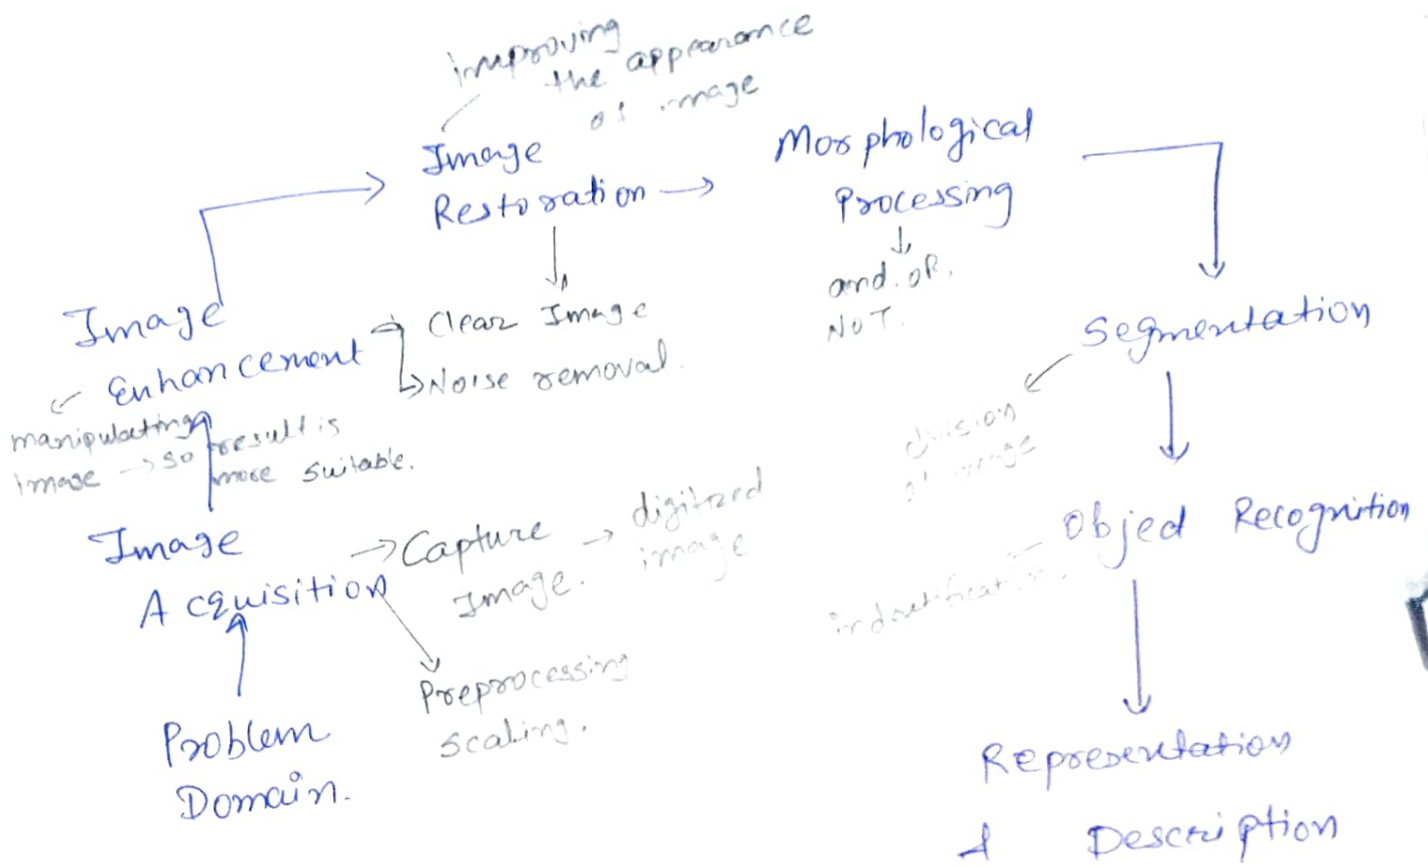 improving
the appearance
of image
Image
Restoration
Morphological
Processing
and. OR.
NOT.
Image
Enhancement
Clear Image
Noise removal.
Segmentation
manipulating
image → so result is
more suitable.
division
of image
Image
Acquisition
Capture
Image.
digitized
image
Object Recognition
Preprocessing
scaling.
Problem
Domain.
Representation
& Description